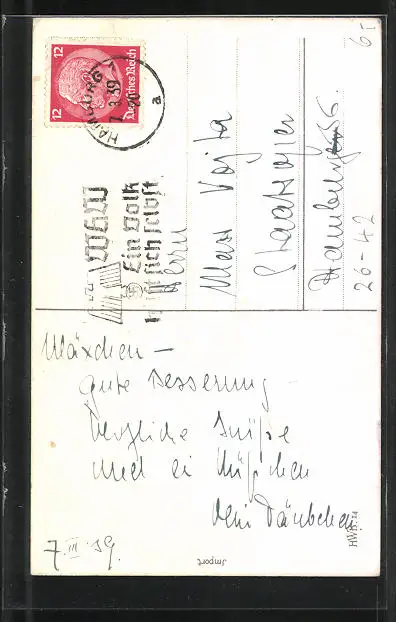 12 12
Deutsches Reich
HAMBURG 1
7.3.39
a
WHW
Ein Volk
hilft sich selbst
Herrn
Max Vojta
Hamburg 36.
26-42
6,-
Mäxchen —
gute Besserung
herzliche Grüße
und ei Küßchen
Dein Täubchen
7. III. 39.
Import